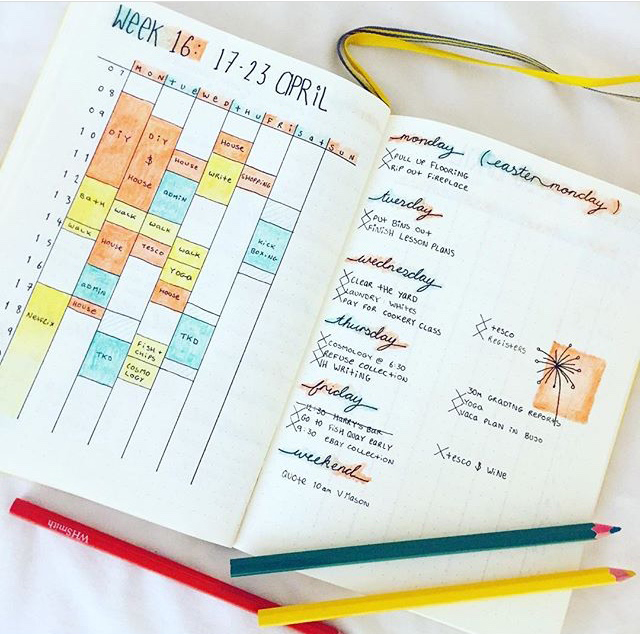 WEEK 16:
17-23 APRIL
MON TUE WED THU FRI SAT SUN
07
08
09
10
11
12
13
14
15
16
17
18
DIY
BATH
WALK
NETFLIX
DIY
$
HOUSE
WALK
HOUSE
ADMIN
HOUSE
TKD
HOUSE
ADMIN
WALK
TESCO
FISH +
CHIPS
COSMO
LOGY
HOUSE
WRITE
WALK
YOGA
HOUSE
TKD
SHOPPING
KICK
BOXING
monday (easter monday)
PULL UP FLOORING
RIP OUT FIREPLACE
tuesday
PUT BINS OUT
FINISH LESSON PLANS
wednesday
CLEAR THE YARD
LAUNDRY WHITES
PAY FOR COOKERY CLASS
TESCO
REGISTERS
thursday
COSMOLOGY @ 6:30
REFUSE COLLECTION
VH WRITING
30M GRADING REPORTS
YOGA
VACA PLAN IN BUJO
friday
12:30 HARRY'S BAR
GO TO FISH QUAY EARLY
9:30 EBAY COLLECTION
TESCO $ WINE
weekend
QUOTE 10am V MASON
WHSmith